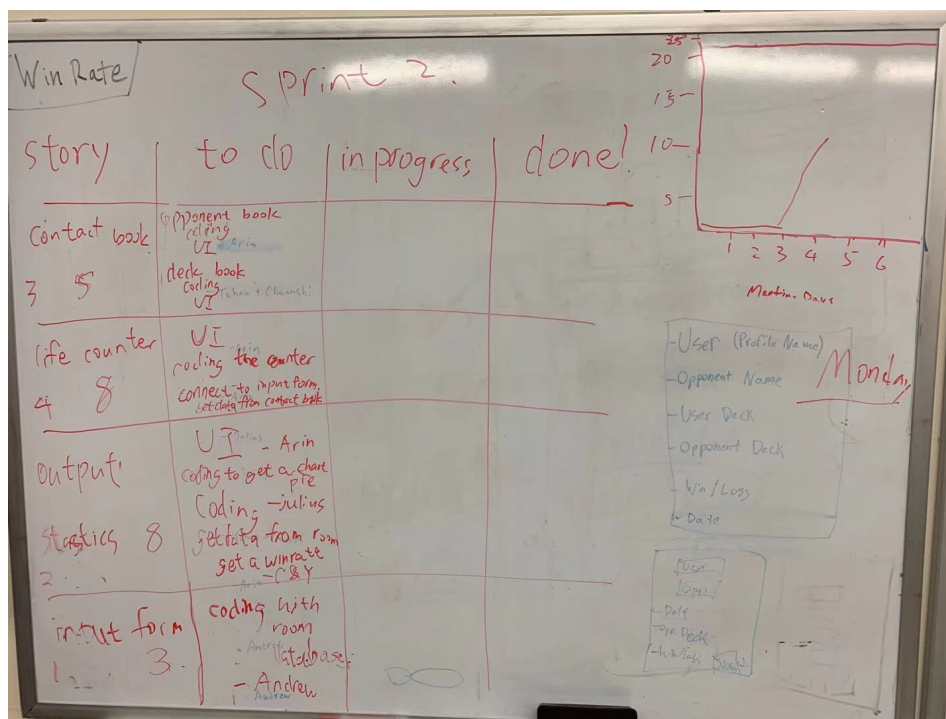 Win Rate
Sprint 2.
story
to do
in progress
done!
Contact book
3 5
opponent book
coding
UI Arin
deck book
coding
UI
life counter
4 8
UI
coding the counter
connect to input form.
get data from contact book
output
stastics 8
2
UI - Arin
coding to get a chart
pie
Coding - julius
get data from room
get a winrate
Arin - C & Y
intut form
1 3
coding with
room
- Andrew
database
- Andrew
Andrew
25
20
15
10
5
1 2 3 4 5 6
Meetin. Days
Monday
- User (Profile Name)
- Opponent Name
- User Deck
- Opponent Deck
- Win / Loss
- Date
User
Opp
- Date
- Opp. Deck